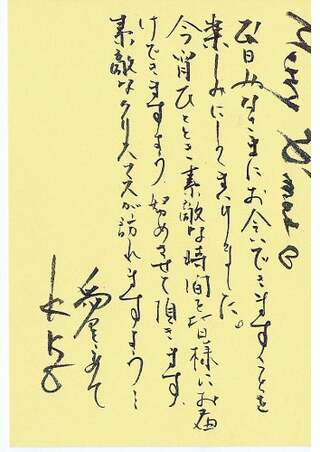 Merry X'mas
日みなさまにお会いできますことを
楽しみにしてまいりました。
今宵ひととき素敵な時間を皆様にお届
けできますよう努めさせて頂きます.
素敵なクリスマスが訪れますように
愛をこめて